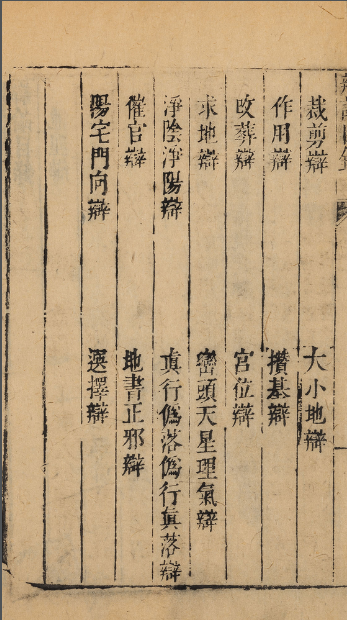 裁剪辯 大小地辯
作用辯 攢基辯
改葬辯 宮位辯
求地辯 巒頭天星理氣辯
淨陰淨陽辯 真行偽落偽行真落辯
催官辯 地書正邪辯
陽宅門向辯 選擇辯